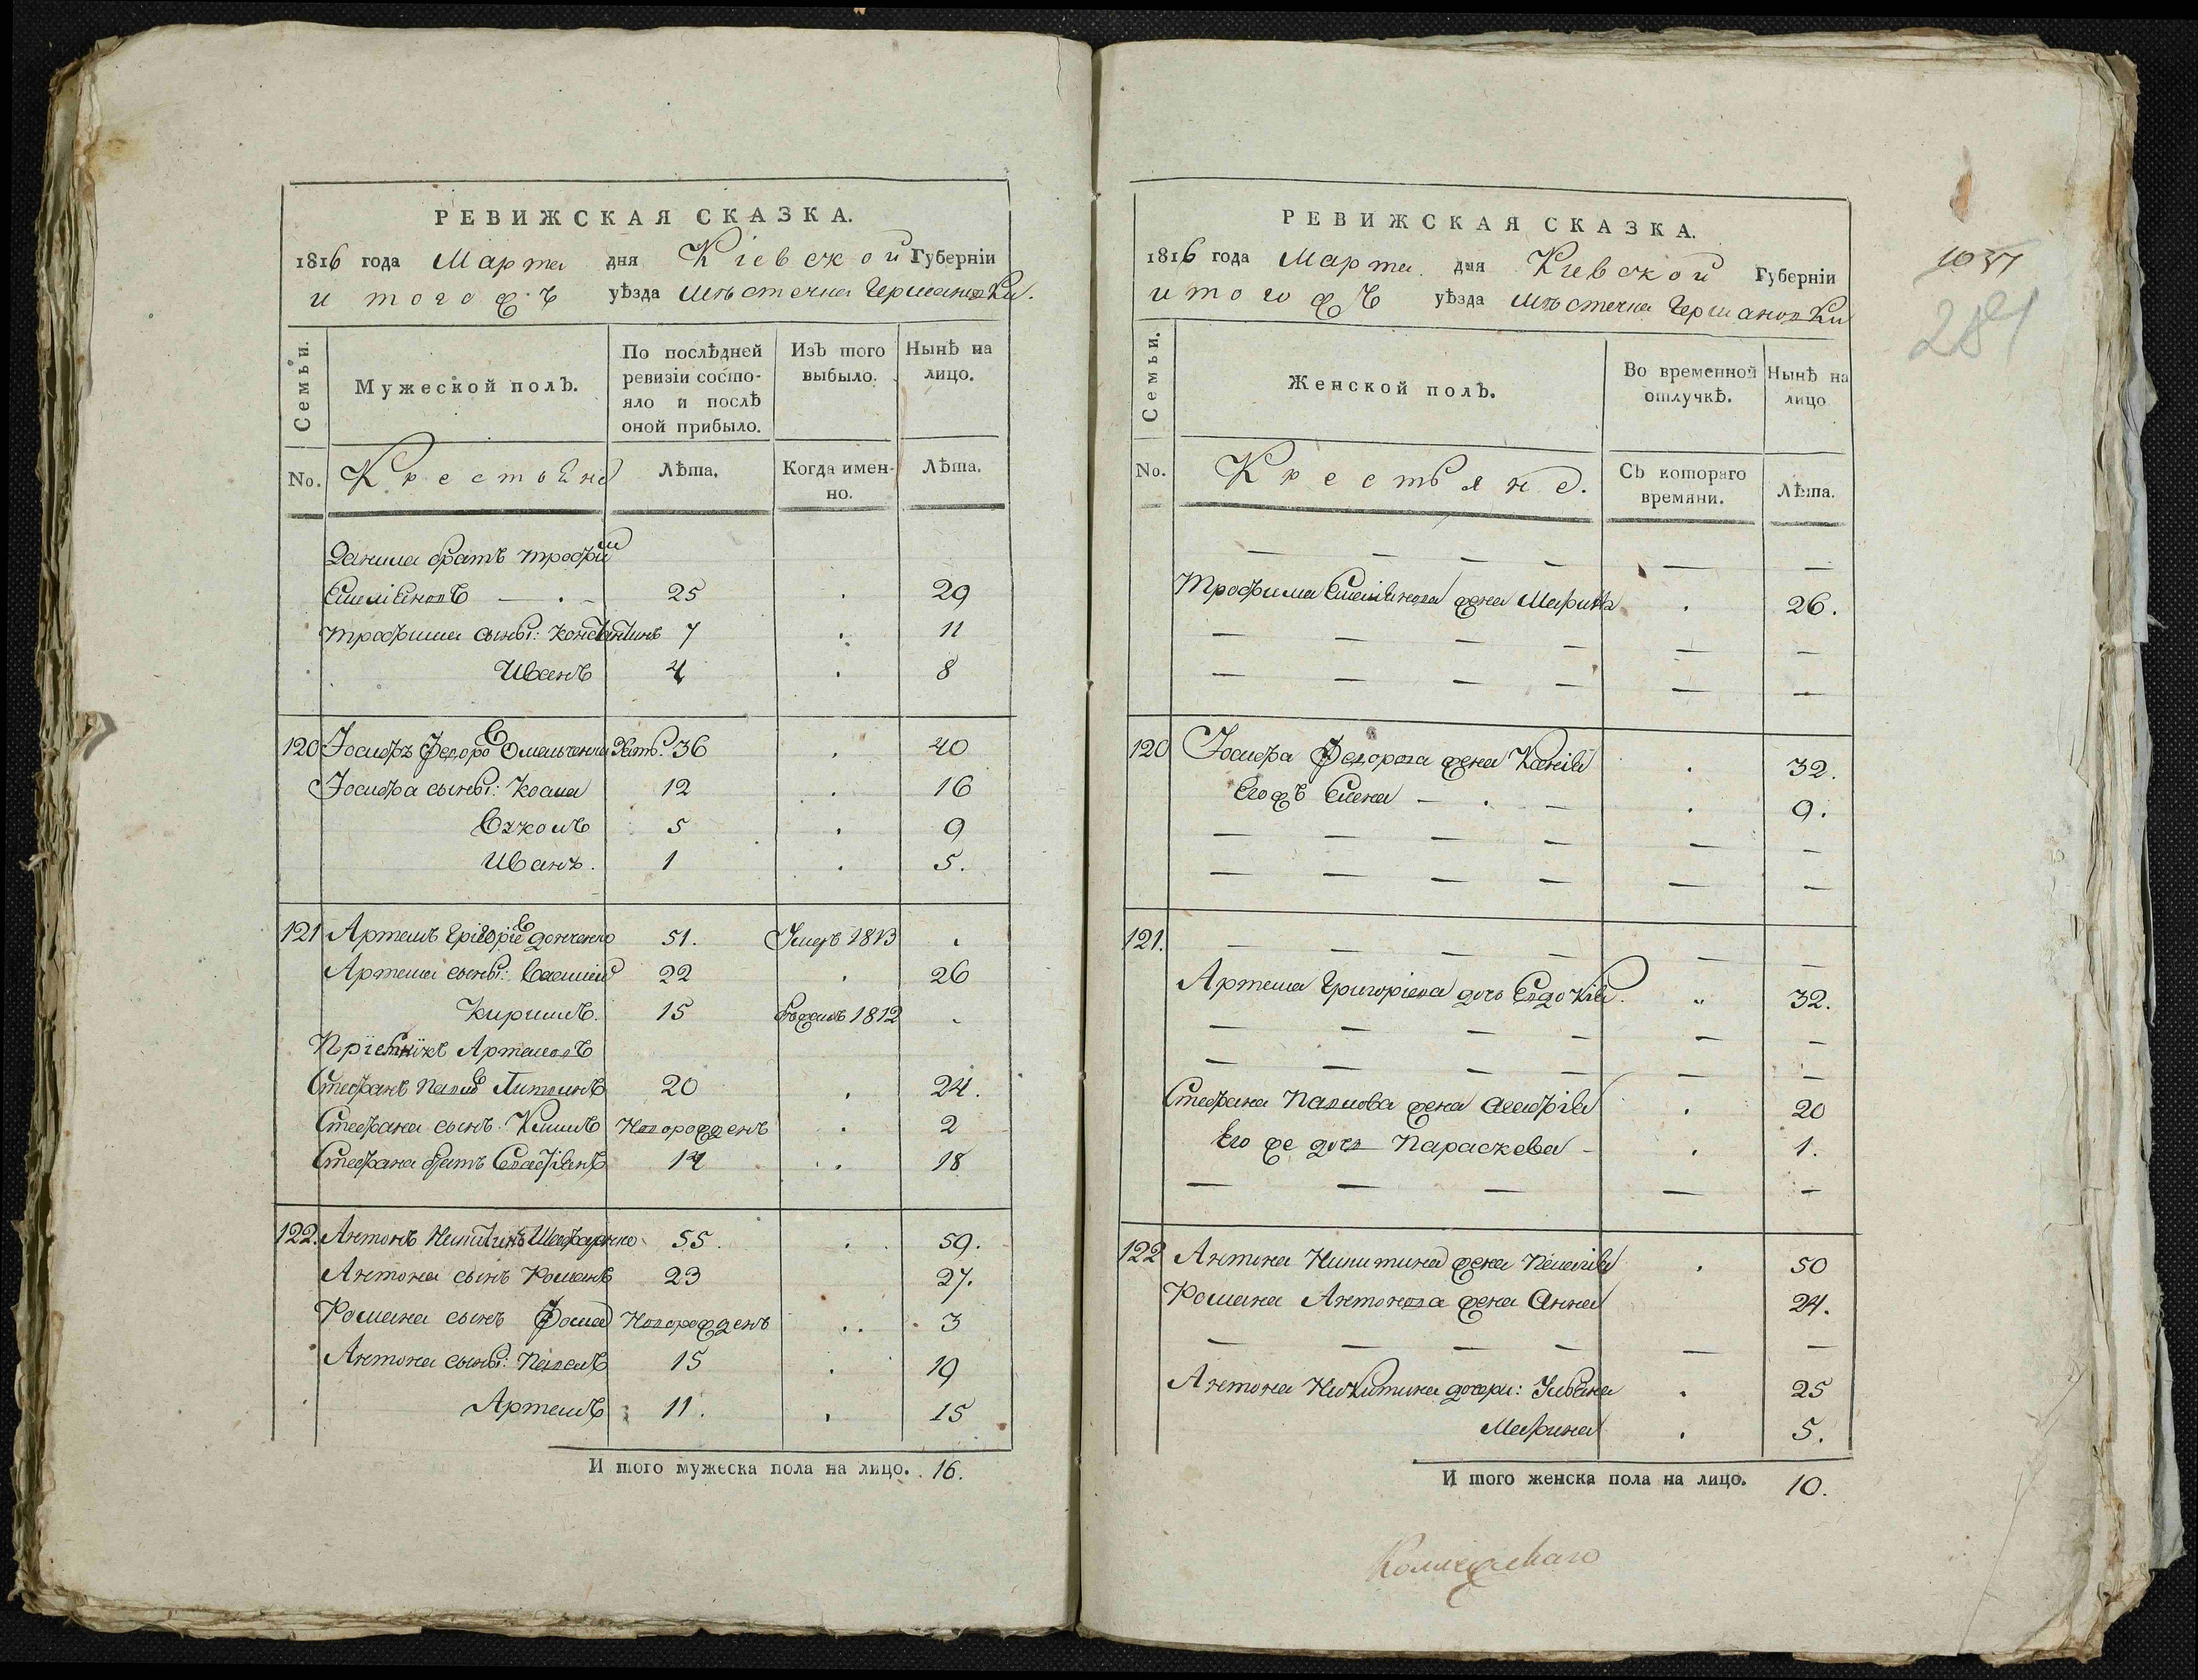 РЕВИЖСКАЯ СКАЗКА.
1816 года Марта дня Кіевской Губерніи
и того жъ уѣзда мѣстечка Германовки.
Семьи.
Мужеской полъ.
По послѣдней ревизіи состояло и послѣ оной прибыло.
Изъ того выбыло.
Нынѣ на лицо.
No.
Крестьяне
Лѣта.
Когда именно.
Лѣта.
Данила братъ Трофим
Емеліяновъ 25 29
Трофима сыны: Константинъ 7 11
Иванъ 4 8
120 Іосифъ Федоро Омельченка зять. 36 40
Іосифа сыны: Козма 12 16
5 9
Иванъ. 1 5.
121 Артемъ Григоріе Донченко 51. Умеръ 1813
Артема сыны: Василій 22 26
Кирилъ. 15 Бѣжалъ 1812
Пріемникъ Артемовъ
Стефанъ Павло Литвинъ 20 24.
Стефана сынъ Климъ Новорожденъ 2
Стефана братъ Евстафіянъ 14 18
122. Антонъ Никитинъ Шафаренко 55. 59.
Антона сынъ Романъ 23 27.
Романа сынъ Фома Новорожденъ 3
Антона сыны: Павелъ 15 19
Артемъ 11. 15
И того мужеска пола на лицо. 16.
РЕВИЖСКАЯ СКАЗКА.
1816 года Марта дня Кіевской Губерніи
и того жъ уѣзда мѣстечка Германовки
Семьи.
Женской полъ.
Во временной отлучкѣ.
Нынѣ на лицо
No.
Крестьяне.
Съ котораго времяни.
Лѣта.
Трофима Емеліянова жена Марина 26.
120 Іосифа Федорова жена Ксенія 32.
Егожъ Елена 9.
121.
Артема Григоріева дочь Евдокія. 32.
Стефана Павлова жена Агафія 20
Его же дочь Параскева 1.
122 Антона Никитина жена Пелагія 50
Романа Антонова жена Анна 24.
Антона Никитина дочери: Ульяна 25
Марина 5.
И того женска пола на лицо. 10.